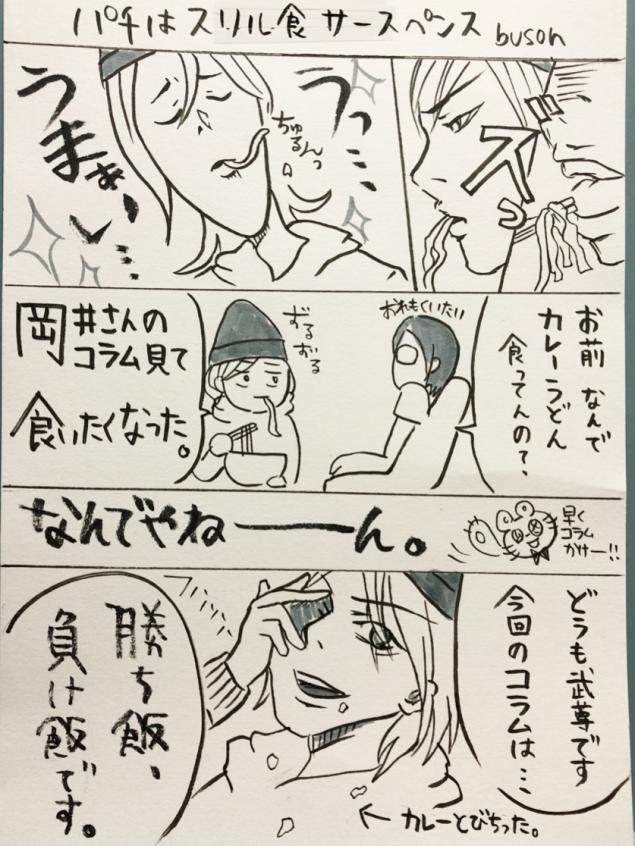 パチはスリル食サースペンス buson
ズ
ズ
うっ…
うまぁい…
ちゅ
るんっ
お前 なんで
カレーうどん
食ってんの?、
おれもくいたい
ずる
ずる
岡井さんの
コラム見て
食いたくなった。
なんでやねーーーん。
早く
コラム
かけー!!
どうも、武尊です
今回のコラムは…
勝ち飯、
負け飯です。
← カレーとびちった。